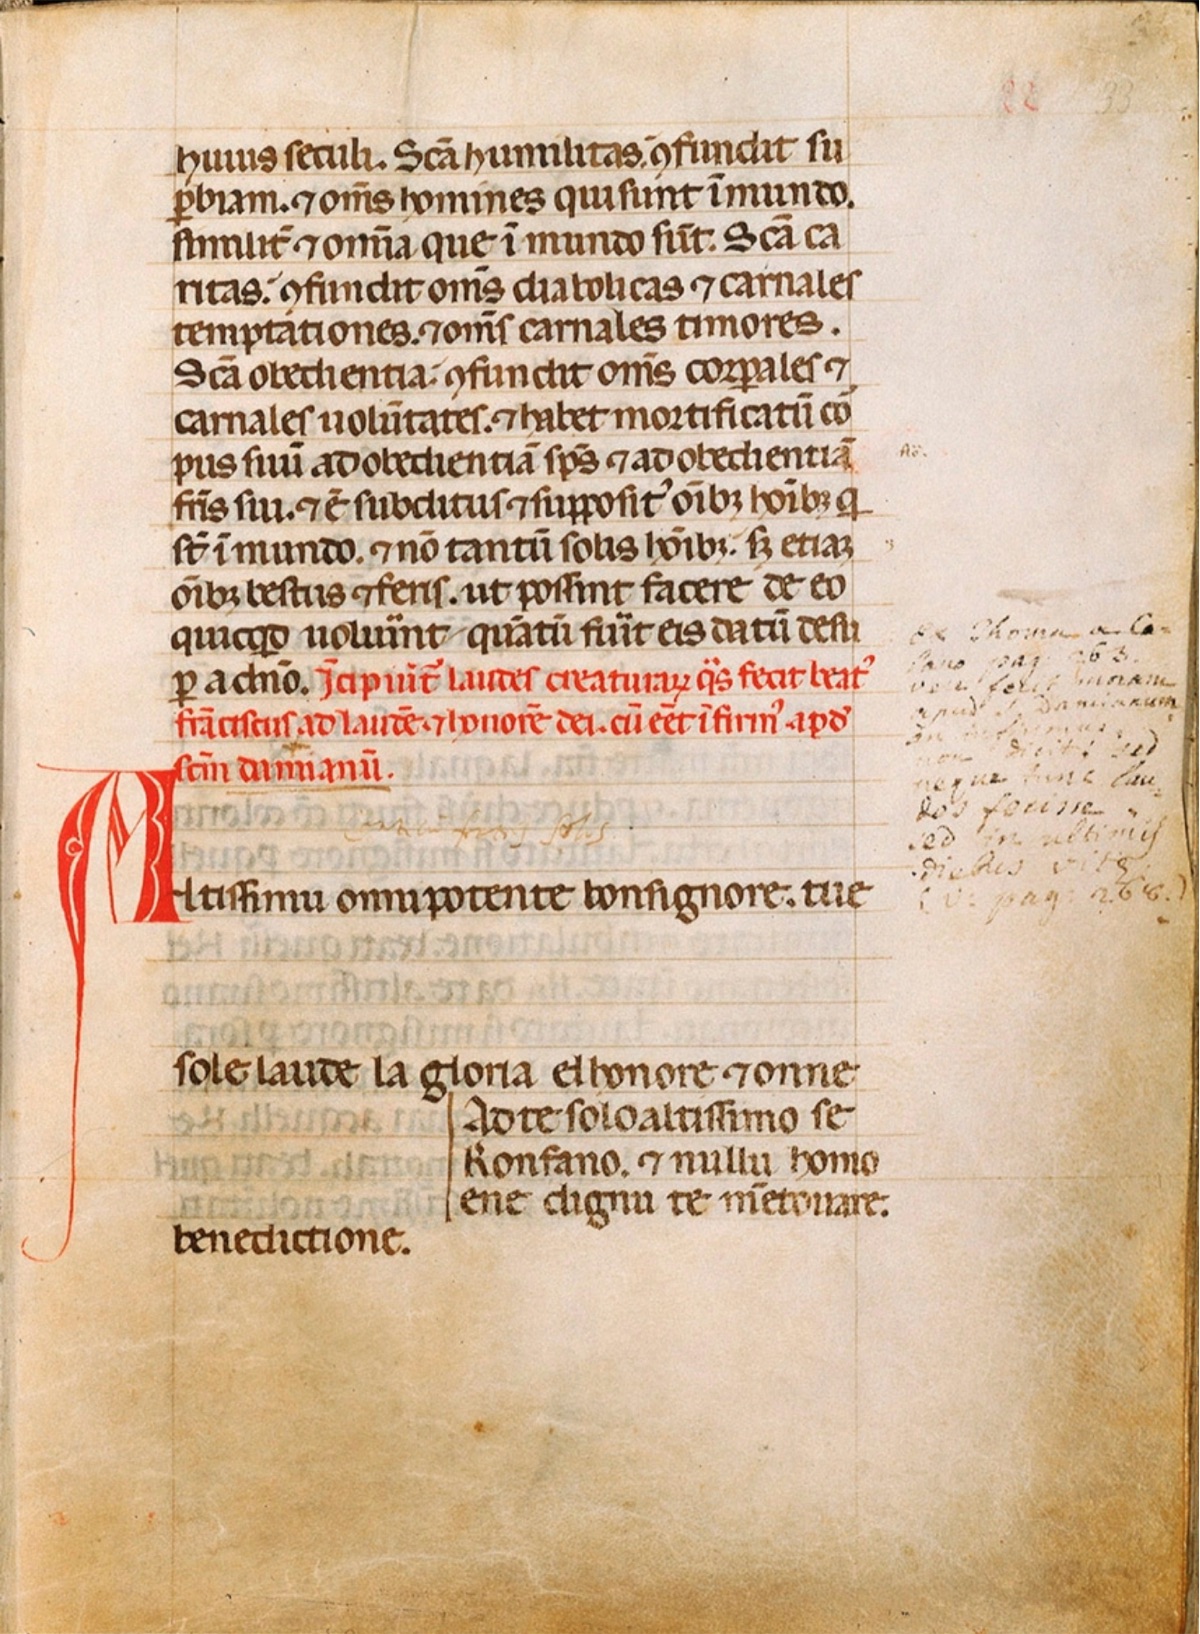 33
huius seculi. Scā humilitas ꝯfundit su
ꝑbiam. ⁊ om̄s homines qui sunt ī mundo.
similit̄ ⁊ om̄ia que ī mundo sūt. Scā ca
ritas. ꝯfundit om̄s diabolicas ⁊ carnales
temptationes. ⁊ om̄s carnales timores.
Scā obedientia. ꝯfundit om̄s corꝑales ⁊
carnales uolūtates. ⁊ habet mortificatū co᷒
pus suū ad obedientiā sp̄s ⁊ ad obedientiā
fr̄is sui. ⁊ ē subditus ⁊ supposit᾽ oībꝫ hoībꝫ q̄
st̄ ī mundo. ⁊ nō tantū solis hoībꝫ. sꝫ etiaꝫ
oībꝫ bestiis ⁊ feris. ut possint facere de eo
quicqd uoluīnt quātū fuīt eis datū desu
ꝑ a dn̄o. Īcipiūt laudes creaturaꝝ q̄s fecit beat᾽
frāciscus ad laudē ⁊ honorē dei. cū eēt ī firm᾽ apd᾽
scm̄ damianū.
Altissimu onnipotente bonsignore. tue
sole laude la gloria elhonore ⁊ onne
benedictione.
Ad te solo altissimo se
Konfano. ⁊ nullu homo
ene dignu te m̄etouare.
Ex Thoma a Ce-
lano pag. 263.
apud S. Damianum
infirmus,
non dicit; sed
neque tunc lau-
des fecisse
sed in ultimis
diebus vitę
(V. pag. 266.)